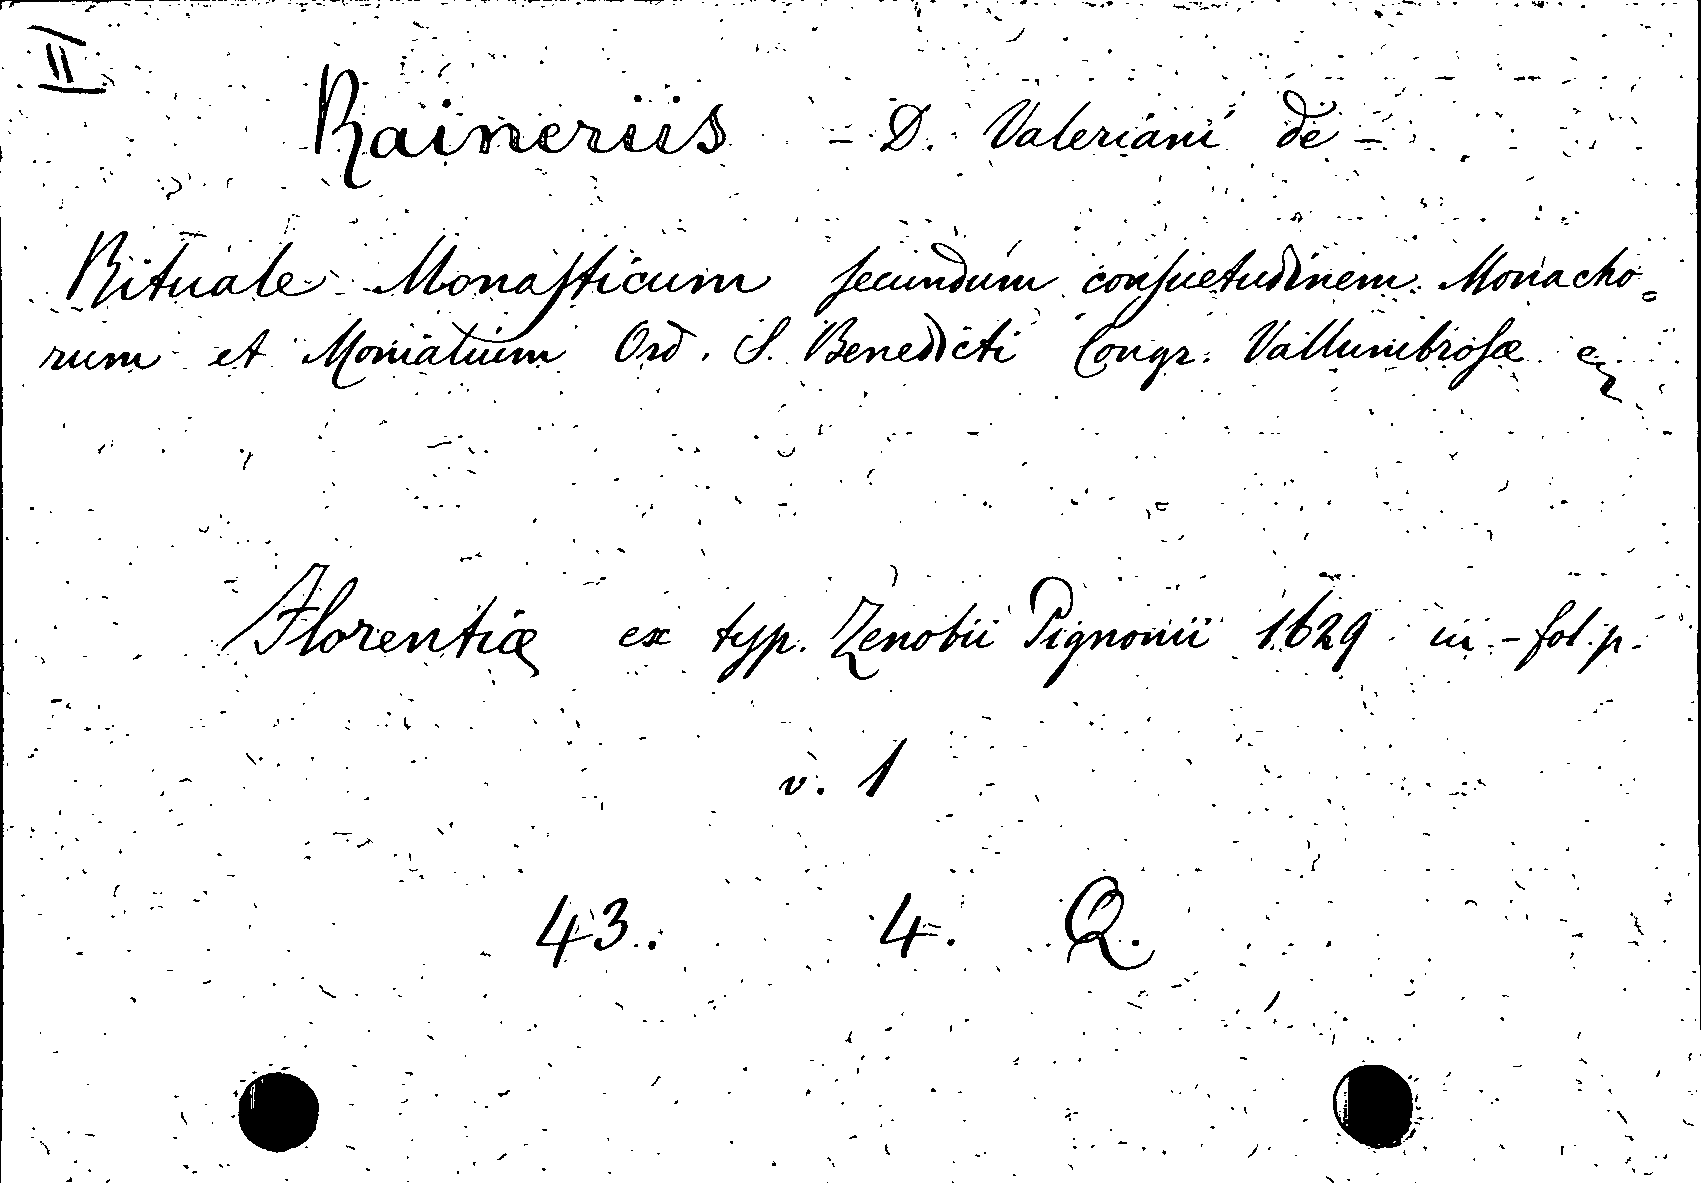 II
Raineriis - D. Valeriani de -
Rituale Monaſticum ſecundum conſuetudinem Monacho=
rum et Monialium Ord. S. Benedicti Congr. Vallumbroſæ
Florentiæ ex typ. Zenobii Pignonii 1629 in-fol. p.
v. 1
43. 4. Q.